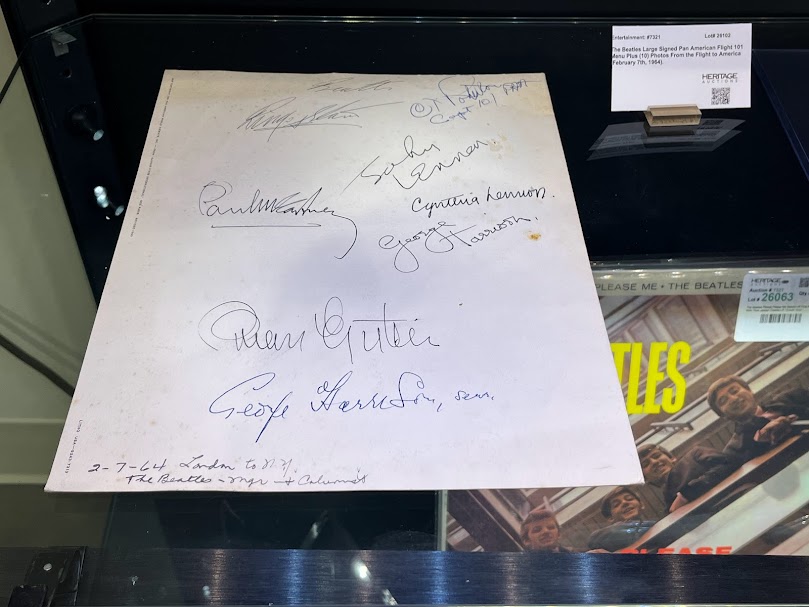 Entertainment #7321 Lot# 29102
The Beatles Large Signed Pan American Flight 101
Menu Plus (10) Photos From the Flight to America
February 7th, 1964).
HERITAGE
AUCTIONS
Beatles
Ringo Starr
Capt 101 PAA
John
Lennon.
Cynthia Lennon.
Paul McCartney
George
Harrison.
Brian Epstein
George Harrison, sen.
2-7-64 London to N.Y
The Beatles - mgr + Columnist
PLEASE ME • THE BEATLES
HERITAGE
Auction #
Lot # 26063
TLES
PLEASE